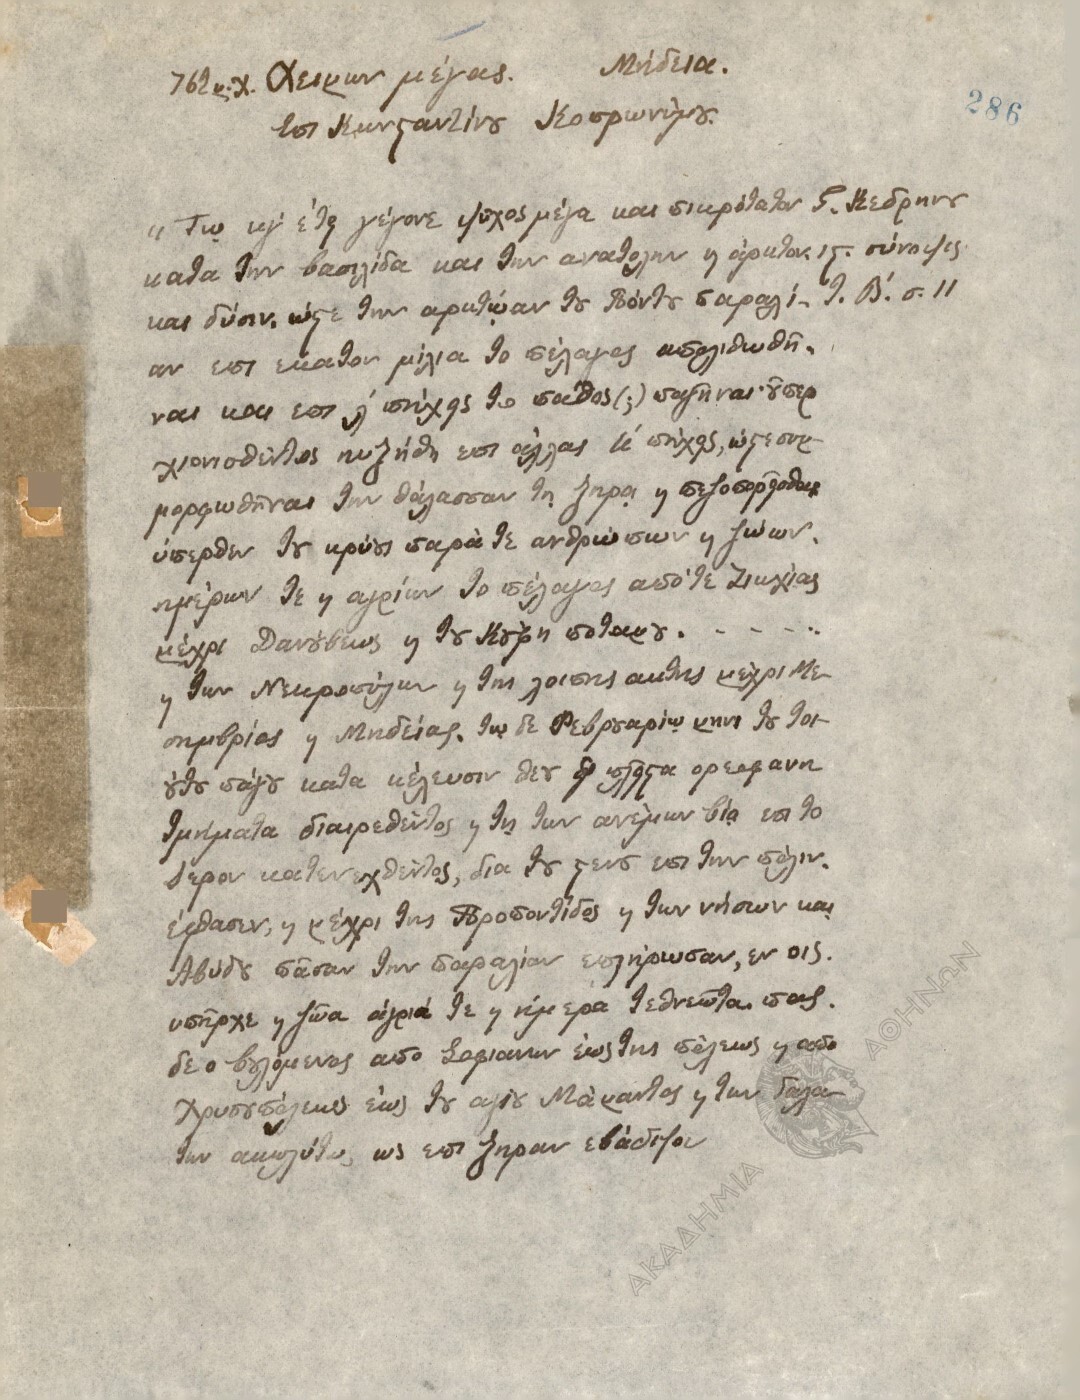 762 μ.χ. Χειμων μέγας. Μήδεια.
επι Κωνσταντίνου Κοπρωνύμου.
286
« Τῳ κγ' έτῃ γέγονε ψύχος μέγα και πικρότατον Γ. Κεδρηνου
κατα την βασιλίδα και την ανατολην κ άρκτον. ις. σύνοψις
και δύσιν. ώςε την αρκτῴαν του Πόντου παραλί- τ. Β'. σ. 11
αν επι εκατον μίλια το πέλαγος απολιθωθῆ-
ναι και επι λ' πήχεις το παθος (;) παγῆναι· ὅπερ
χιονισθέντος ηυξήθη επι άλλας κ' πήχεις, ώςε συμ-
μορφωθῆναι την θάλασσαν τῃ ξηρᾳ κ πεζοπορεῖσθαι
ύπερθεν του κρύους παρά τε ανθρώπων κ ζώων.
ημέρων τε κ αγρίων το πέλαγος από τε Ζικχίας
μέχρι Δανούβεως κ του Κούφη ποταμου. - - - -.
κ των Νεκροπύλων κ της λοιπης ακτης μέχρι Με-
σημβρίας κ Μηδείας. τῳ δε Φεβρουαρίῳ μηνι του τοι-
ούτου πάγου κατα κέλευσιν θεου πλεῖςα ορεοφανη
τμήματα διαιρεθέντος κ τῃ των ανέμων βίᾳ επι το
ιερον κατενεχθέντος, δια του ςενου επι την πόλιν.
έφθασεν, κ μέχρι της Προποντίδος κ των νήσων και
Αβύδου πᾶσαν την παραλίαν επλήρωσαν, εν οις.
υπῆρχε κ ζῶα άγριά τε κ ήμερα τεθνεῶτα. πας.
δε ο βουλόμενος απο Σοφιανων έως της πόλεως κ απο
Χρυσουπόλεως έως του αγίου Μάμαντος κ των Γαλά-
των ακωλύτως, ως επι ξηραν εβάδιζε
ΑΚΑΔΗΜΙΑ ΑΘΗΝΩΝ